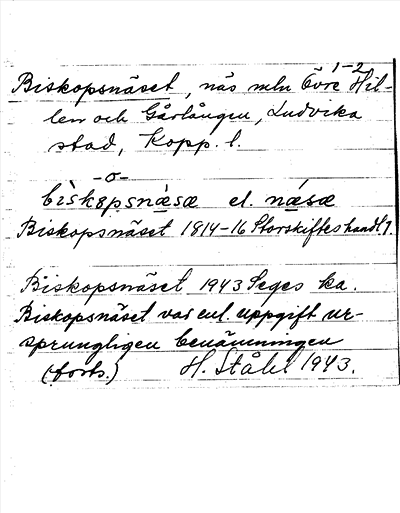 1-2
Biskopsnäset, näs mln Övre Hil-
len och Gårlången, Ludvika
stad, Kopp. l.
-o-
bìskopsnæ̀sæ el. nǽsæ
Biskopsnäset 1814-16 Storskifteshandl.
Biskopsnäset 1943 Seges ka.
Biskopsnäset var enl. uppgift ur-
sprungligen benämningen
(forts.) H. Ståhl 1943.